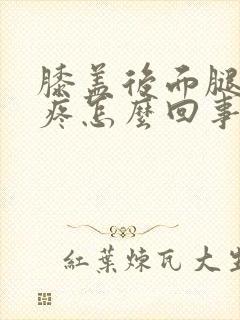 膝盖後面腿
疼怎麼回事
紅葉煉瓦大